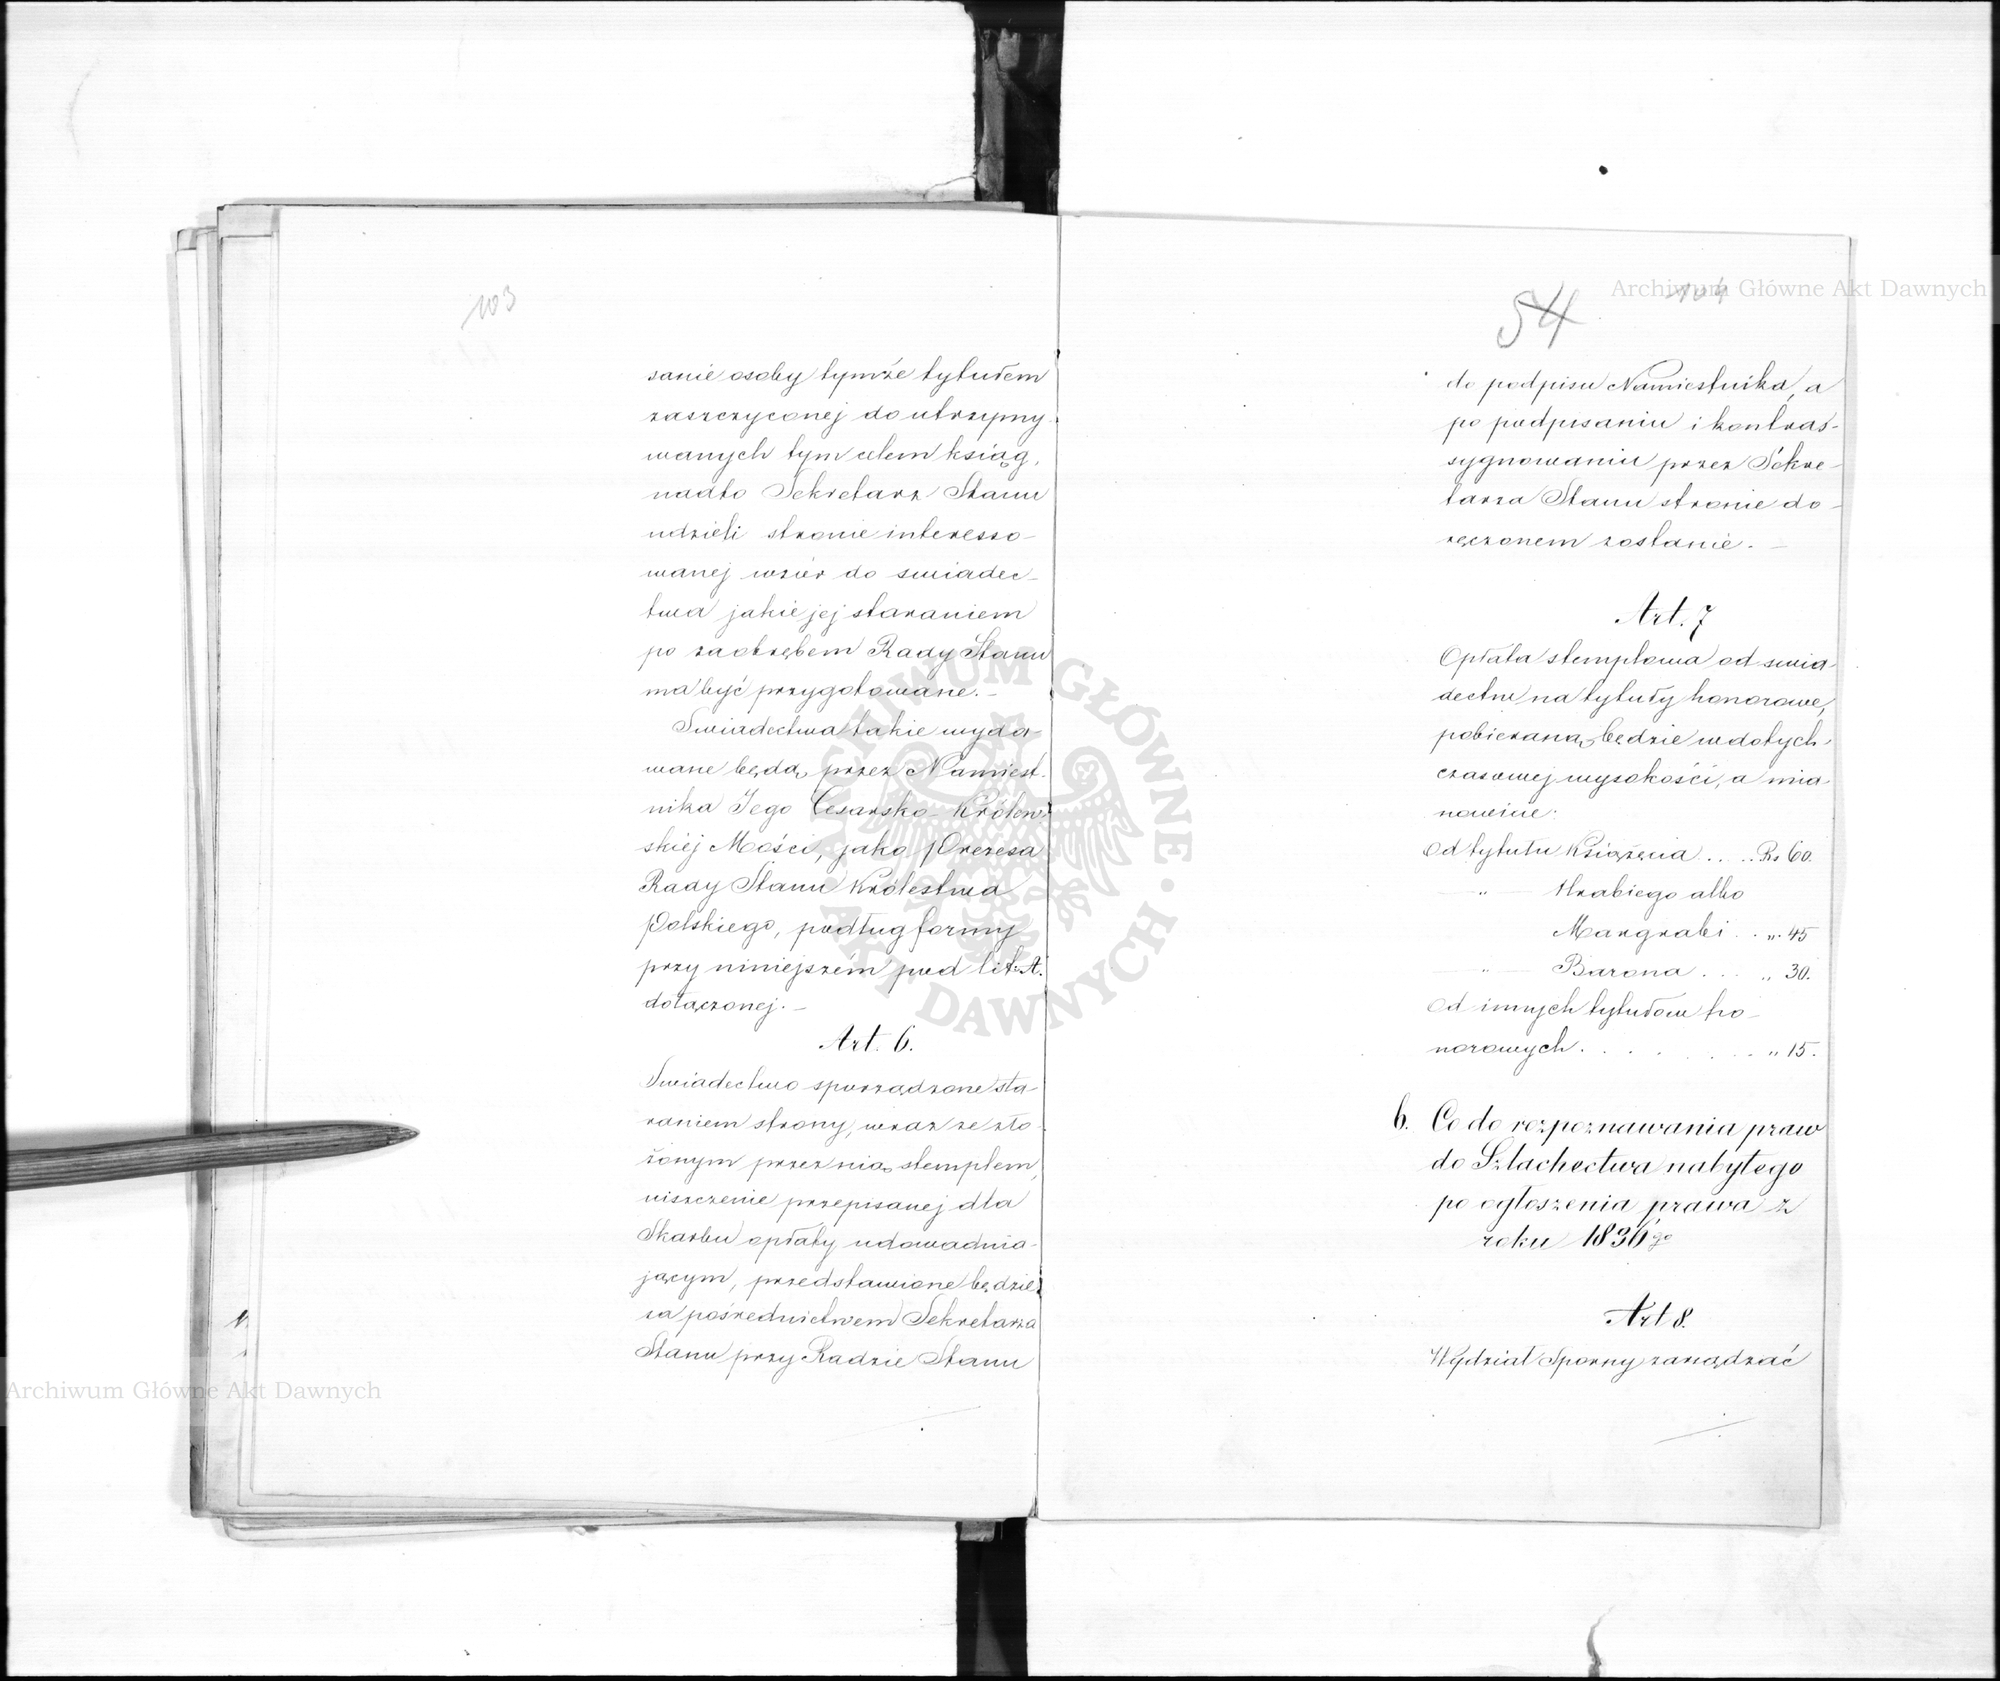 103
sanie osoby tymże tytułem
zaszczyconej do utrzymy-
wanych tym celem ksiąg,
nadto Sekretarz Stanu
udzieli stronie interesso-
wanej wzór do swiadec-
twa jakie jej staraniem
po za obrębem Rady Stanu
ma być przygotowane. –
Swiadectwa takie wyda-
wane będą, przez Namiest-
nika Jego Cesarsko-Królew-
skiéj Mości, jako Prezesa
Rady Stanu Królestwa
Polskiego, podług formy
przy niniejszém pod lit: A.
dołączonej. –
Art. 6.
Swiadectwo sporządzone sta-
raniem strony, wraz ze zło-
żonym przez nią stemplem,
uiszczenie przepisanej dla
Skarbu opłaty udowadnia-
jącym, przedstawione będzie
za pośrednictwem Sekretarza
Stanu przy Radzie Stanu
54
104
do podpisu Namiestnika, a
po podpisaniu i kontras-
sygnowaniu przez Sekre-
tarza Stanu stronie do-
ręczonem zostanie. –
Art. 7
Opłata stemplowa od swia-
dectw na tytuły honorowe,
pobieraną będzie w dotych-
czasowej wysokości, a mia-
nowicie:
Od tytułu Książęcia . . . . Rs 60.
" — Hrabiego albo
Margrabi . . „ 45
" — Barona . . . „ 30.
Od innych tytułów ho-
norowych . . . . . . . . „ 15.
b. Co do rozpoznawania praw
do Szlachectwa nabytego
po ogłoszenia prawa z
roku 1836go
Art 8.
Wydział Sporny zarządzać
Archiwum Główne Akt Dawnych
Archiwum Główne Akt Dawnych
ARCHIWUM GŁÓWNE • AKT DAWNYCH •